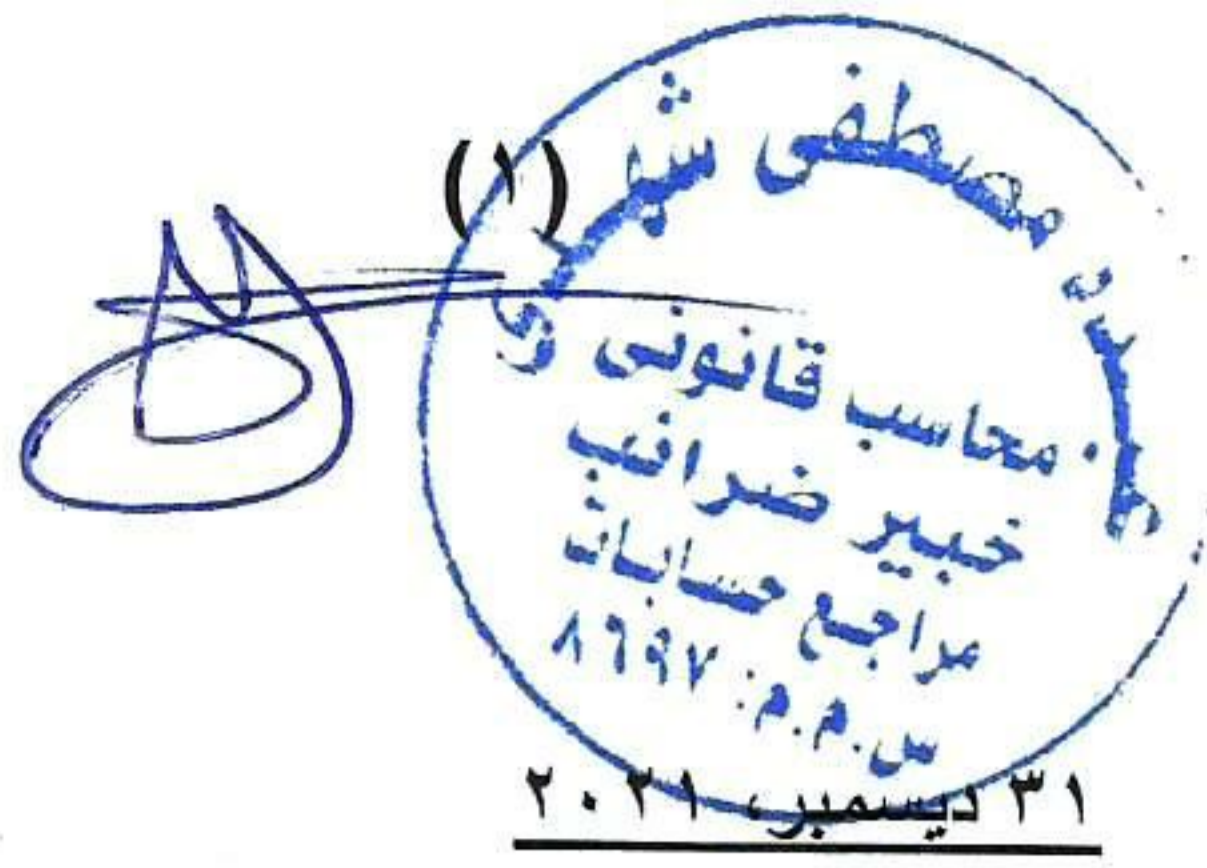 (١)
مصطفى
محاسب قانونى
خبير ضرائب
مراجع حسابات
س.م.م: ٨٦٩٧
٣١ ديسمبر، ٢٠٢١